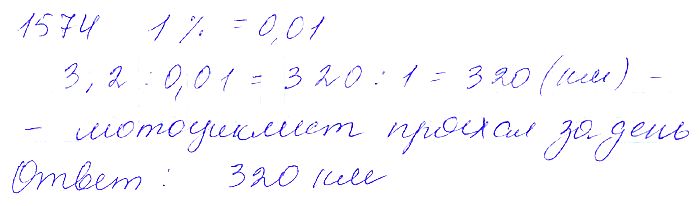 1574 1 % = 0,01
3,2 : 0,01 = 320 : 1 = 320 (км) -
- мотоциклист проехал за день
Ответ : 320 км